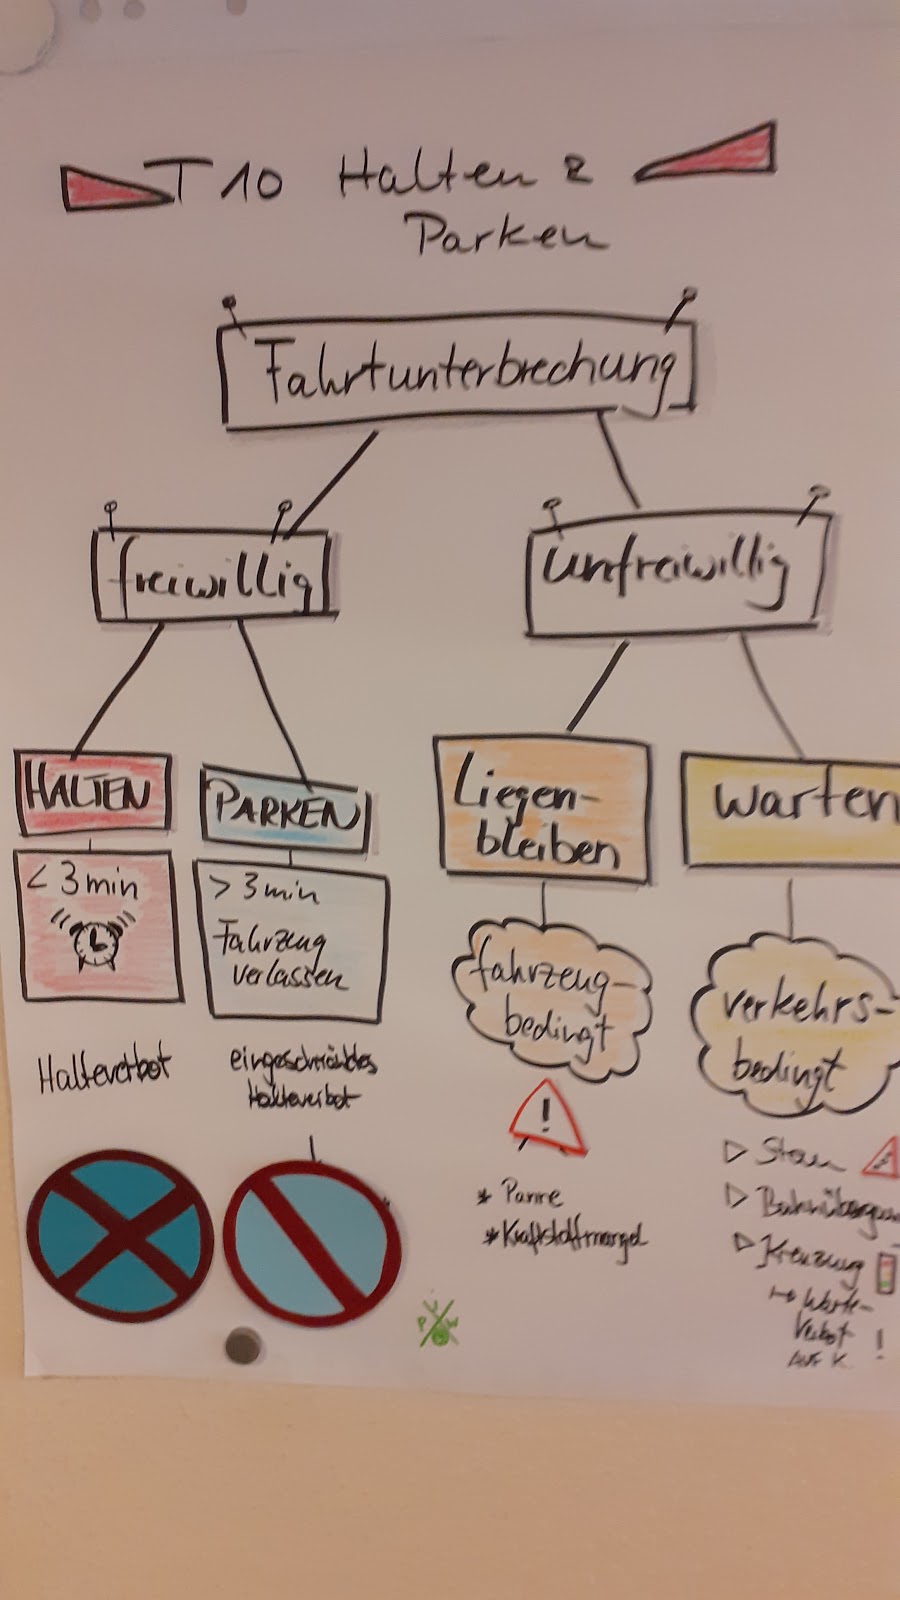 T 10 Halten &
Parken
Fahrtunterbrechung
freiwillig
unfreiwillig
HALTEN
PARKEN
Liegen-
bleiben
Warten
< 3 min
> 3 min
Fahrzeug
verlassen
fahrzeug-
bedingt
verkehrs-
bedingt
Halteverbot
eingeschränktes
Halteverbot
!
* Panne
* Kraftstoffmangel
▷ Stau
▷ Bahnüberga
▷ Kreuzung
↳ Warte-
Verbot !
AUF K
P U W